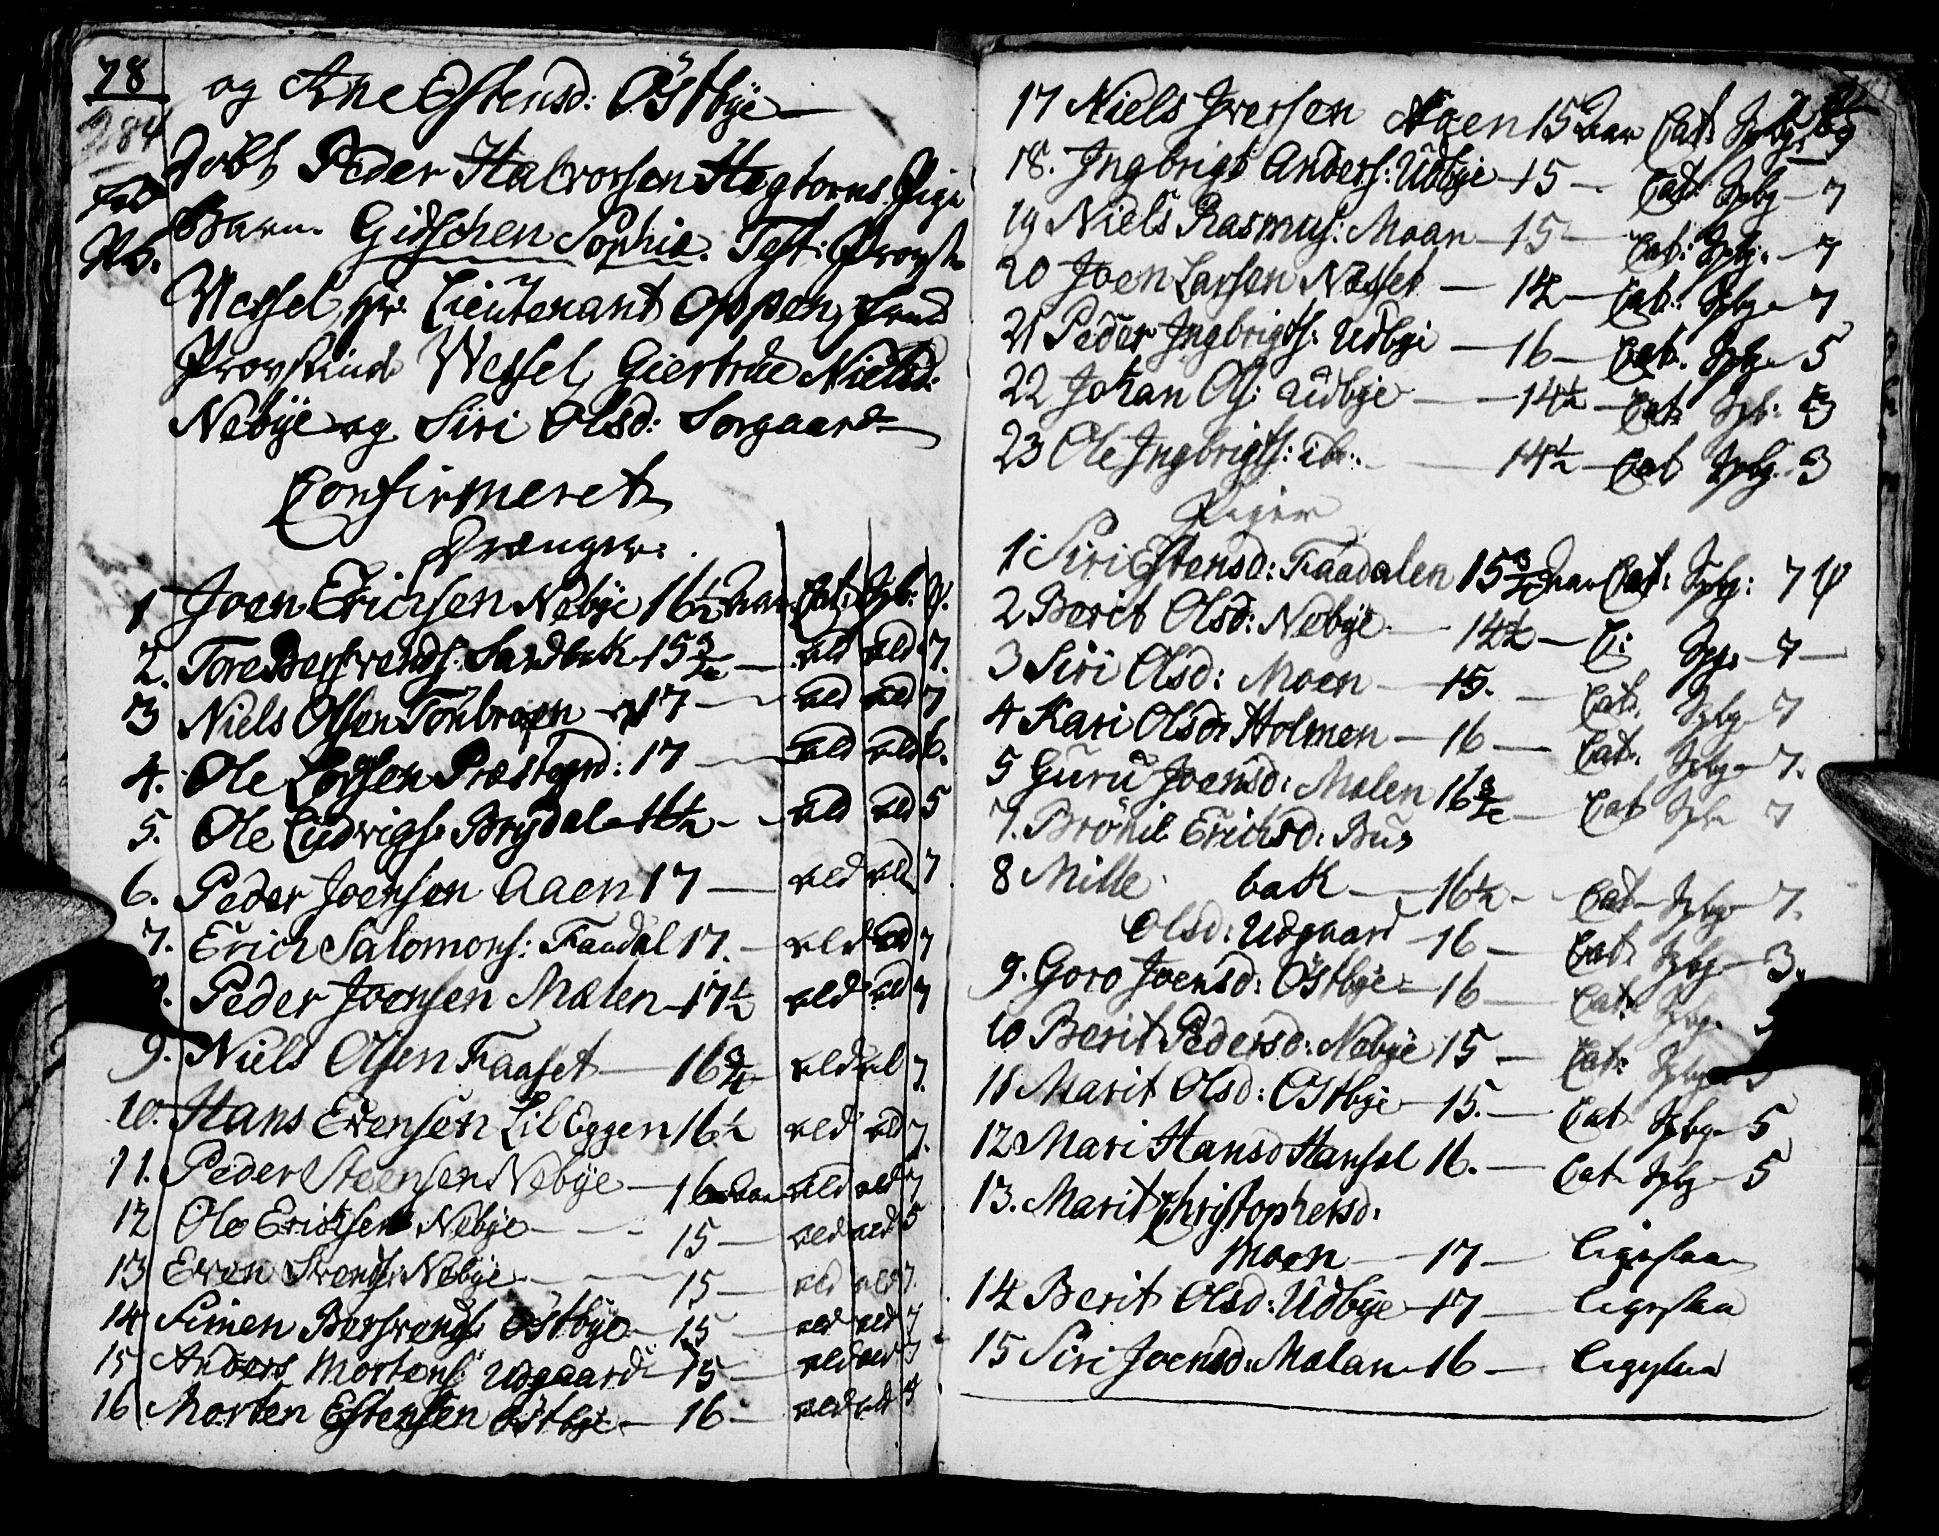 78
284
og Ane Estensd: Östbÿe
Döbt Peder Halvorsen Hegtorns Pige
Barn. Gidschen Sophia. Test: Provst
Wessel, Hr. Lieutenant Oppen,
Provstinde Wessel, Giertrue Nielsd:
Nebÿe og Siri Olsd: Sorgaard
Confirmeret
Drænger:
1 Joen Erichsen Nebÿe 16½ Aar Cat: Spb: 9.
2. Tore Bersvends: Sandbak 15¾ — 7.
3 Niels Olsen Tonbroen 17 — 7
4. Ole Præstegrd: 17 — 6.
5. Ole Ludvigs: Brydal 16½ - 5
6. Peder Joensen Aaen 17 — 7
7. Erich Salomons: Faadal 17. — 7
8. Peder Joensen Malen 17½ 7
9. Niels Olsen Faaset — 16¾ 7.
10. Hans Evensen Lil Eggen 16½ 7.
11. Peder Steensen Nebÿe — 16 Aar 7
12 Ole Erichsen Nebÿe — 15 — 5
13 Even Svends: Nebÿe — 15 — 7
14 Simen Bersvends: Östbÿe — 15 7
15 Anders Mortens: Udgaard — 15 —
16 Morten Estensen Östbÿe — 16 -
17 Niels Iversen Aaen 15 Aar Cat: Spbg: 9
18. Ingbrigt Anders: Udbÿe — 15 — Cat: Spbg — 7
19 Niels Rasmus: Moan — 15 — Cat: Spbg. — 7
20 Joen Larsen Næsset — 14 — Cat: Spbg — 7
21 Peder Ingbrigts: Udbÿe — 16 — Cat. Spbg — 5
22 Johan Ols: Udbÿe — 14½ — Cat: Spb: 3
23 Ole Ingbrigts: ib: — 14½ — Cat Spbg. 3
Piger
1 Siri Estensd: Faadalen 15¾ Aar Cat: Spbg: 7
2 Berit Olsd: Nebÿe — 14½ — C: Spg: — 7 —
3 Siri Olsd: Moen — 15. — Cat. Spbg — 7
4 Kari Olsd: Holmen — 16 — Cat. Spbg — 7.
5 Guru Joensd: Malen 16¾ — Cat Spb 7
7. Brönil Erichsd: Bus
8 Mille bak — 16½ — Cat — Spbg — 7.
Olsd: Udgaard — 16 — Cat. Spbg — 3.
9. Goro Joensd: Östbÿe — 16 — Cat. Spbg.
10 Berit Pedersd: Nebÿe 15 — Cat: Spbg
11 Marit Olsd: Östbÿe — 15. — Cat Spbg — 5
12 Mari Hansd Hansøl 16. — Cat Spbg — 5
13. Marit Christophersd:
Moen — 17 — ligesaa
14 Berit Olsd: Udbÿe — 17 — ligesaa
15 Siri Joensd: Malan — 16 — ligesaa